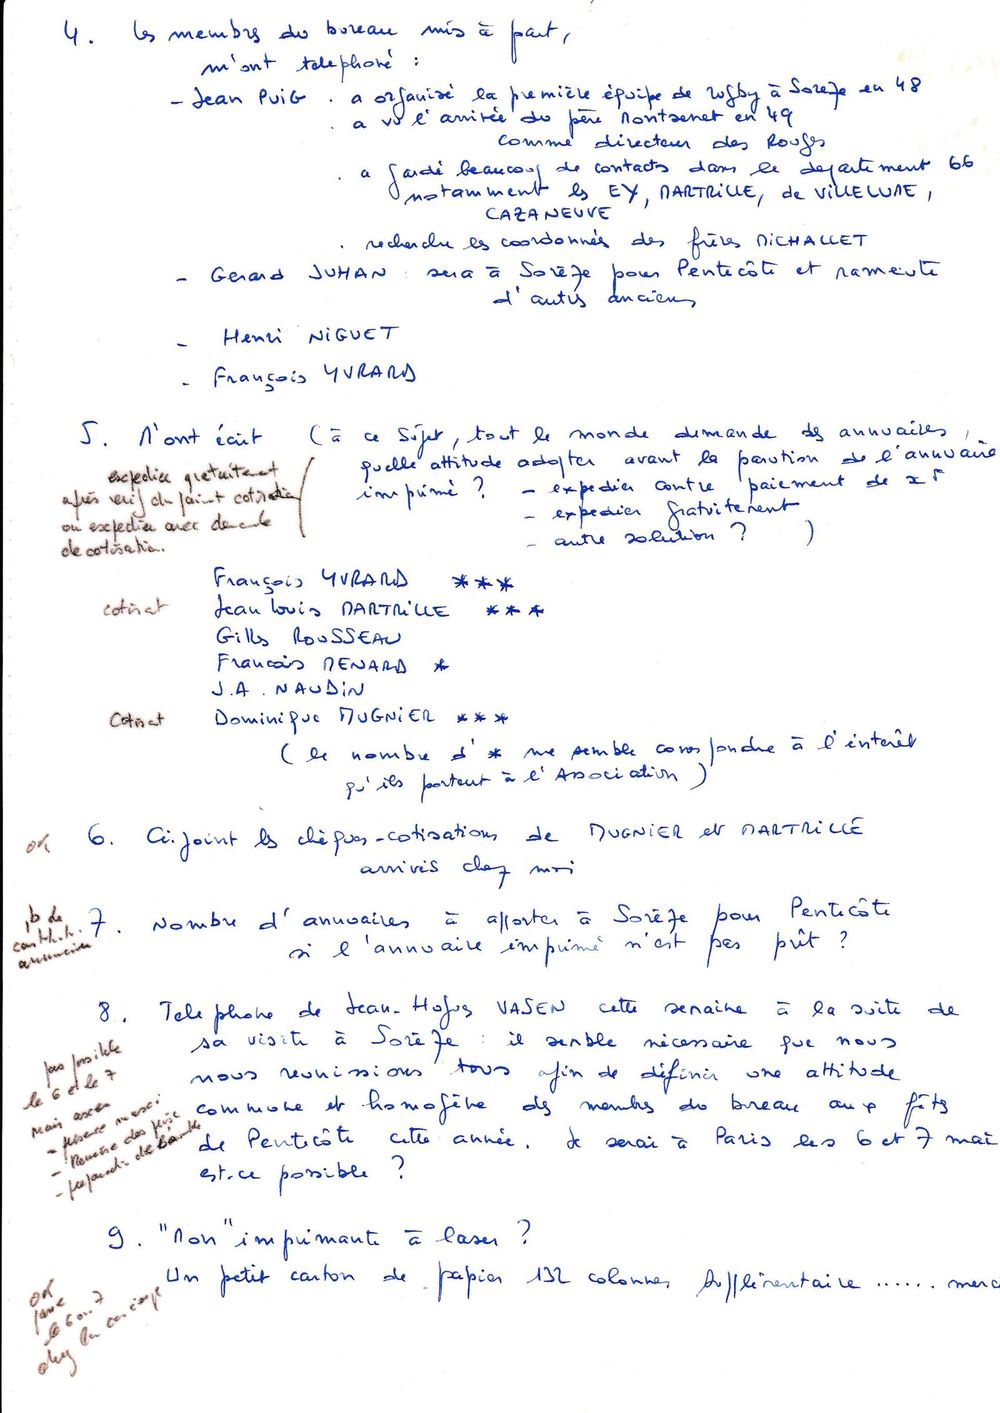 4. les membres du bureau mis à part,
m'ont telephoné :
- Jean PUIG . a organisé la première équipe de rugby à Sorèze en 48
. a vu l'arrivée du père Montserret en 49
comme directeur des Rouges
. a gardé beaucoup de contacts dans le departement 66
notamment les EY, MARTRILLE, de VILLELUME,
CAZANEUVE
. recherche les coordonnés des frères MICHALLET
- Gerard JUHAN : sera à Sorèze pour Pentecôte et rameute
d'autres anciens
- Henri NIGUET
- François YVRARD
5. M'ont écrit (à ce sujet, tout le monde demande des annuaires,
quelle attitude adopter avant la parution de l'annuaire
imprimé ? - expedier contre paiement de x F
- expedier gratuitement
- autre solution ? )
expedier gratuitement
après verif du paiement cotisation
ou expedier avec demande
de cotisation.
François YVRARD ***
cotisat Jean Louis MARTRILLE ***
Gilles ROUSSEAU
Francois MENARD *
J.A. NAUDIN
Cotisat Dominique MUGNIER ***
( le nombre d' * me semble correspondre à l'intérêt
qu'ils portent à l'Association )
ok 6. Ci-joint les chèques-cotisations de MUGNIER et MARTRILLE
arrivés chez moi
pb de
7. Nombre d'annuaires à apporter à Sorèze pour Pentecôte
si l'annuaire imprimé n'est pas prêt ?
8. Telephone de Jean-Hugues VASEN cette semaine à la suite de
sa visite à Sorèze : il semble nécessaire que nous
nous reunissions tous afin de définir une attitude
commune et homogène des membres du bureau aux fêtes
de Pentecôte cette année. Je serai à Paris les 6 et 7 mai
est-ce possible ?
pas possible
le 6 et le 7
mais
-
- Remise des prix
- preparation de
9. "Mon" imprimante à laser ?
Un petit carton de papier 132 colonnes supplémentaire ...... merci
ok
le 6 ou 7
chez